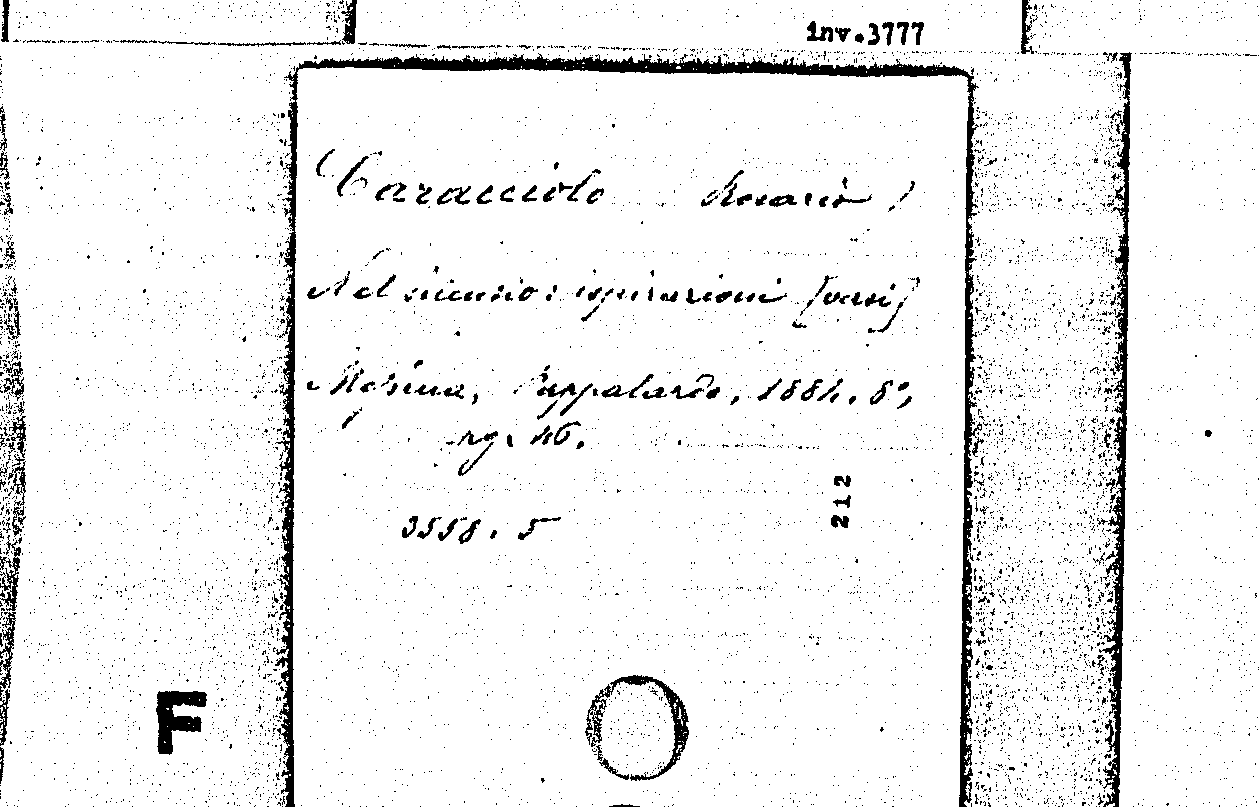 inv.3777
Caracciolo Rosario
Nel silenzio: ispirazioni [versi]
Messina, Pappalardo, 1884. 8°,
pg. 46.
212
3558. 5
F